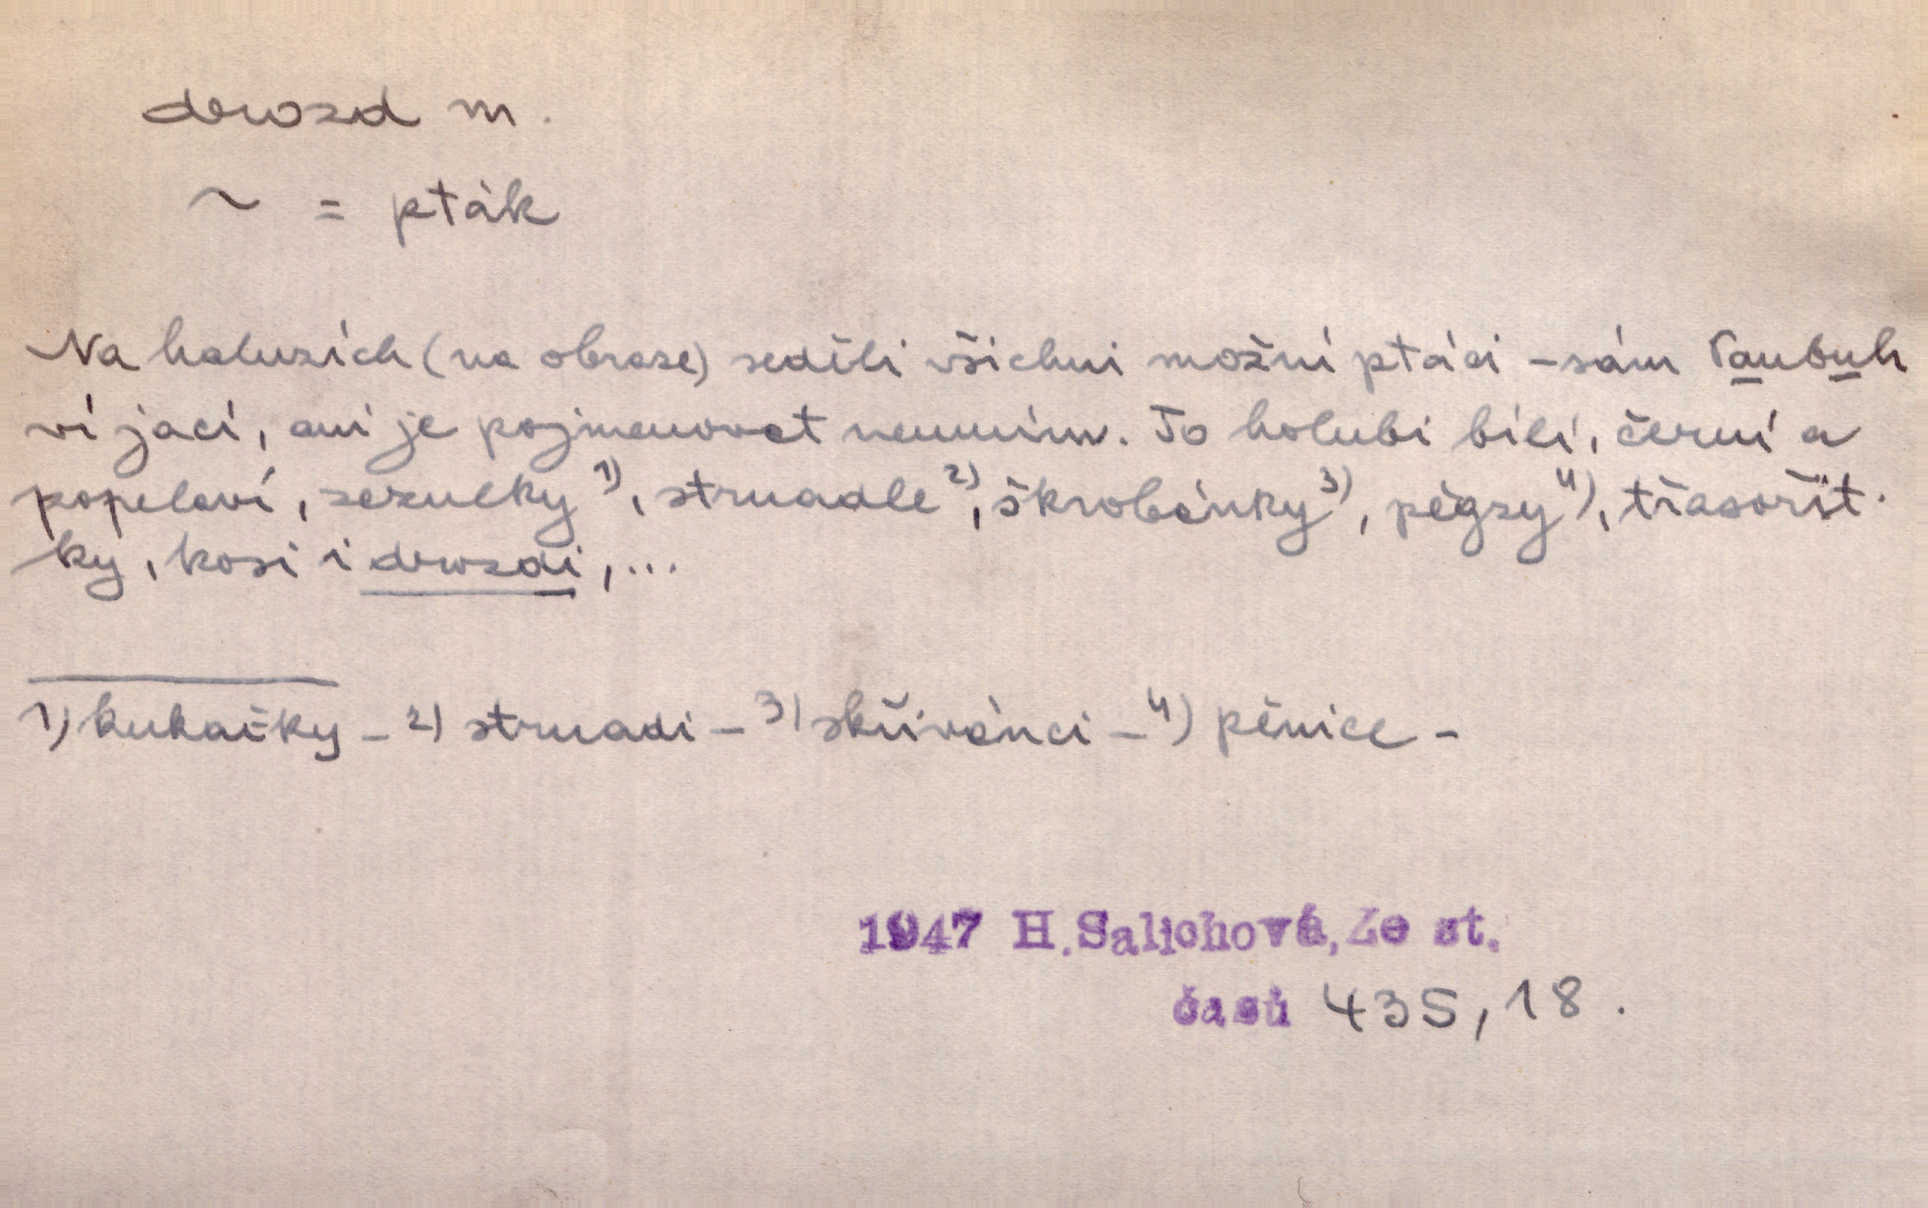 drozd m.
~ = pták
Na haluzích (na obraze) seděli všichni možní ptáci – sám Paubuh
ví jací, ani je pojmenovat neumím. To holubi bílí, černí a
popelaví, zezulky 1), strnadle 2), škrobánky 3), pěgzy 4), třasořit-
ky, kosi i drozdi, ...
1) kukačky – 2) strnadi – 3) skřivánci – 4) pěnice –
1947 H.Salichová, Ze st.
časů 435, 18.